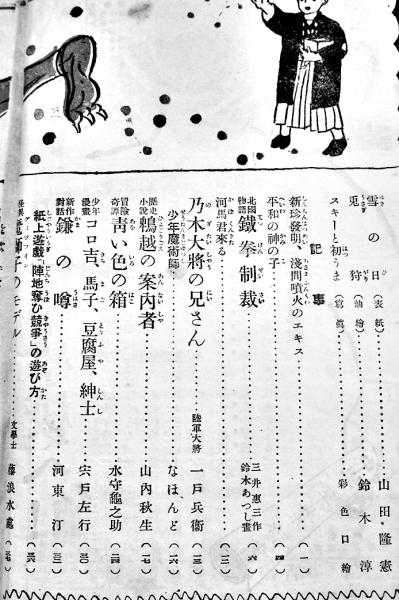 雪の日(表紙)………山田隆憲
兎狩(油繪)………鈴木淳
スキーと初うま(寫眞)………彩色口繪
記事
新珍發明、淺間噴火のエキス………(一)
平和の神の子………(四)
北國物語 鐵拳制裁………三井惠三作 鈴木あつし畫(六)
河馬君來る………(一二)
乃木大將の兄さん………陸軍大將 一戸兵衞(一三)
少年魔術師………なほんど(一六)
歷史小說 鵯越の案内者………山内秋生(一七)
冒險奇譚 靑い色の箱………水守龜之助(二四)
少年漫畫 コロ吉、馬子、豆腐屋、紳士………宍戸左行(三〇)
新作對話 鎌の噂………河東汀(三二)
紙上遊戲「陣地奪ひ競爭」の遊び方………(三六)
獅子のモデル………文學士 藤浪水處(三七)